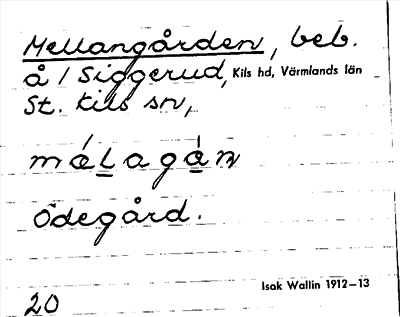 Mellangården, beb.
å / Siggerud, Kils hd, Värmlands län
St. Kils sn,
málagán
Ödegård.
Isak Wallin 1912—13
20